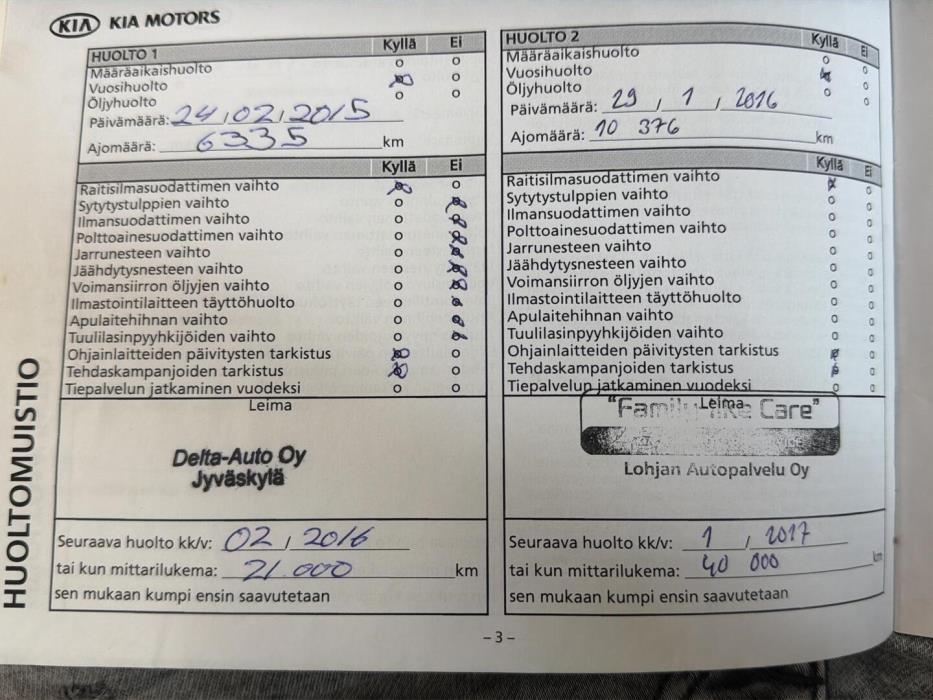 KIA KIA MOTORS
HUOLTO 1 Kyllä Ei
Määräaikaishuolto o o
Vuosihuolto o
Öljyhuolto o o
Päivämäärä: 24 , 02 , 2015
Ajomäärä: 6335 km
Kyllä Ei
Raitisilmasuodattimen vaihto o
Sytytystulppien vaihto o
Ilmansuodattimen vaihto o
Polttoainesuodattimen vaihto o
Jarrunesteen vaihto o
Jäähdytysnesteen vaihto o
Voimansiirron öljyjen vaihto o
Ilmastointilaitteen täyttöhuolto o
Apulaitehihnan vaihto o
Tuulilasinpyyhkijöiden vaihto o
Ohjainlaitteiden päivitysten tarkistus o
Tehdaskampanjoiden tarkistus o
Tiepalvelun jatkaminen vuodeksi o o
Leima
Delta-Auto Oy
Jyväskylä
Seuraava huolto kk/v: 02 / 2016
tai kun mittarilukema: 21.000 km
sen mukaan kumpi ensin saavutetaan
HUOLTO 2 Kyllä Ei
Määräaikaishuolto o o
Vuosihuolto o
Öljyhuolto o o
Päivämäärä: 29 , 1 , 2016
Ajomäärä: 10 376 km
Kyllä Ei
Raitisilmasuodattimen vaihto o
Sytytystulppien vaihto o o
Ilmansuodattimen vaihto o o
Polttoainesuodattimen vaihto o o
Jarrunesteen vaihto o o
Jäähdytysnesteen vaihto o o
Voimansiirron öljyjen vaihto o o
Ilmastointilaitteen täyttöhuolto o o
Apulaitehihnan vaihto o o
Tuulilasinpyyhkijöiden vaihto o o
Ohjainlaitteiden päivitysten tarkistus o
Tehdaskampanjoiden tarkistus o
Tiepalvelun jatkaminen vuodeksi o o
Leima
"Family-like Care"
Lohjan Autopalvelu Oy
Seuraava huolto kk/v: 1 / 2017
tai kun mittarilukema: 40 000 km
sen mukaan kumpi ensin saavutetaan
HUOLTOMUISTIO
– 3 –